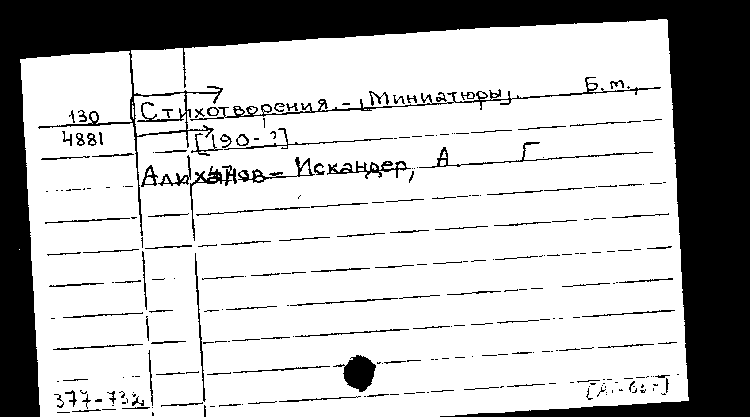 130 Стихотворения. - [Миниатюры]. Б.т.,
4881 [190-?].
Алиханов - Искандер, А. Г
377-732